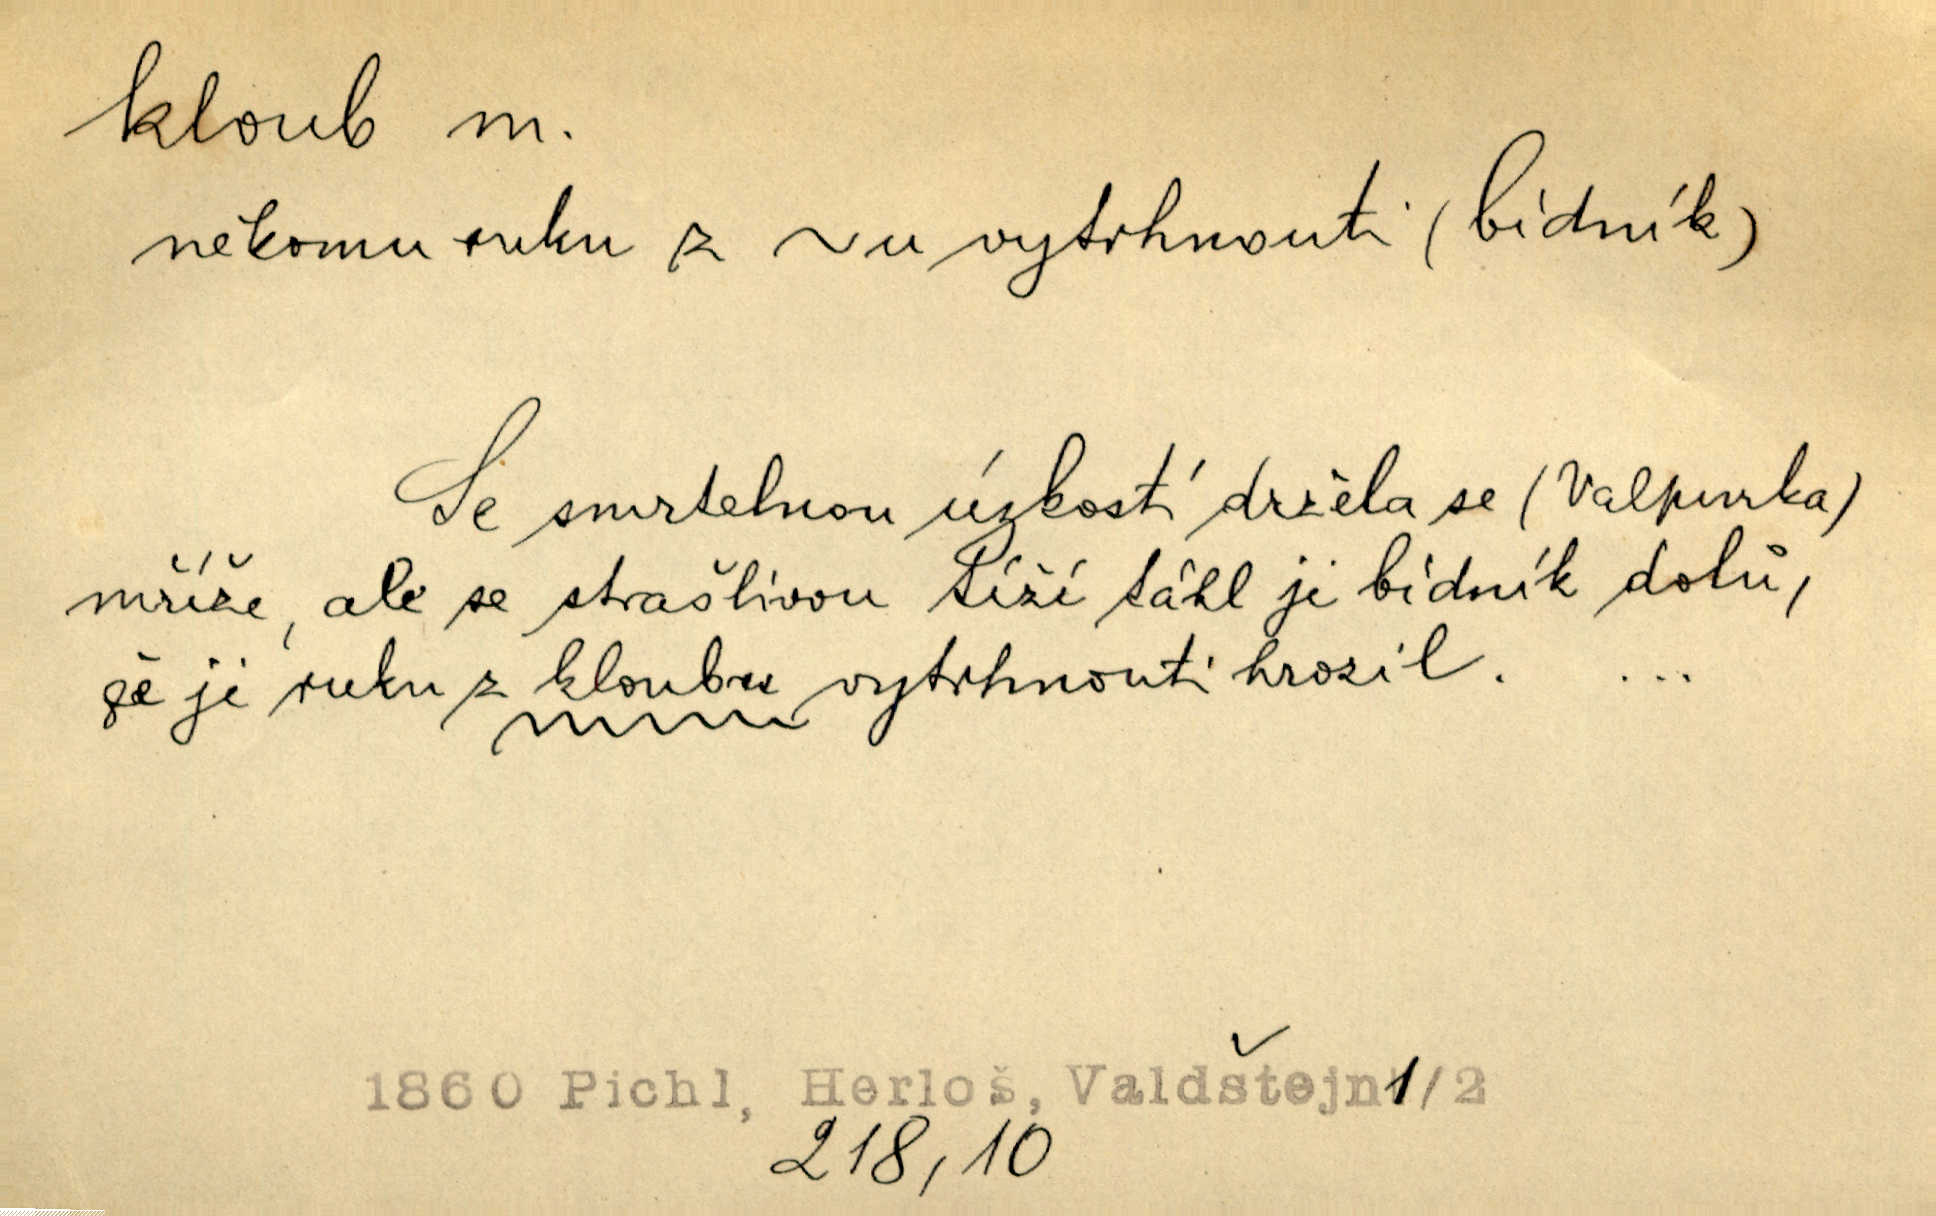 kloub m.
někomu ruku z ~u vytrhnouti (bídník)
Se smrtelnou úzkostí držela se (Valpurka)
mříže, ale se strašlivou tíží táhl ji bídník dolů,
že jí ruku z kloubu vytrhnouti hrozil. ...
1860 Pichl, Herloš, Valdštejn 1/2
218, 10